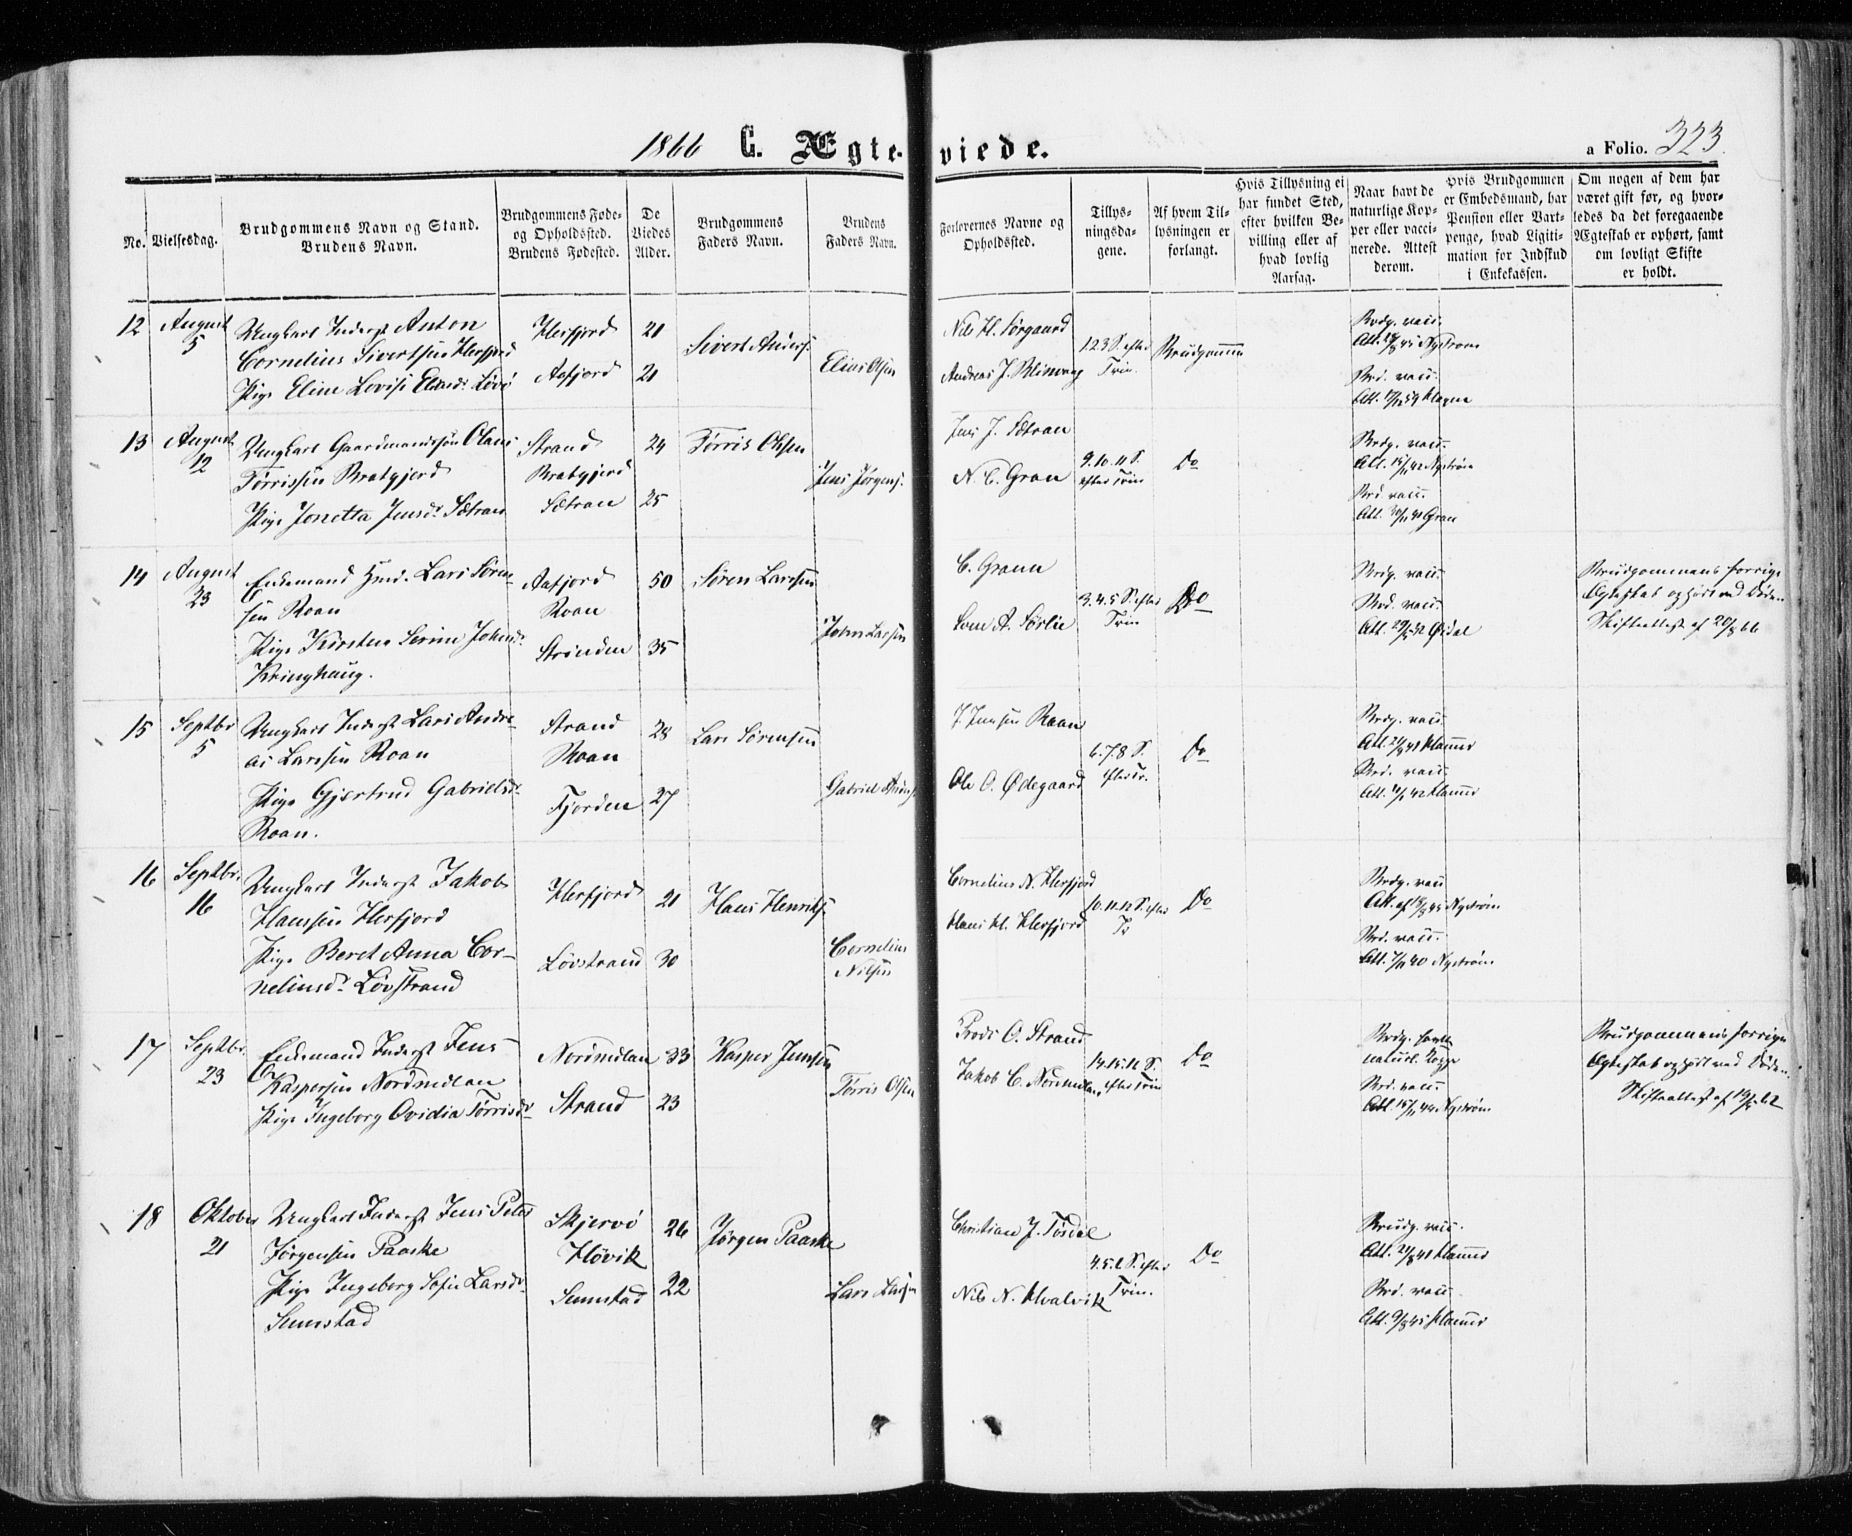 1866 C. Ægteviede.
a Folio. 323.
No.
Vielsesdag.
Brudgommens Navn og Stand.
Brudens Navn.
Brudgommens Føde-
og Opholdsted.
Brudens Fødested.
De
Viedes
Alder.
Brudgommens
Faders Navn.
Brudens
Faders Navn.
Forlovernes Navne og
Opholdssted.
Tillys-
ningsda-
gene.
Af hvem Til-
lysningen er
forlangt.
Hvis Tillysning ei
har fundet Sted,
efter hvilken Be-
villing eller af
hvad lovlig
Aarsag.
Naar havt de
naturlige Kop-
per eller vacci-
nerede. Attest
derom.
Hvis Brudgommen
er Embedsmand, har
Pension eller Vart-
penge, hvad Ligiti-
mation for Indskud
i Enkekassen.
Om nogen af dem har
været gift før, og hvor-
ledes da det foregaaende
Ægteskab er ophørt, samt
om lovligt Skifte
er holdt.
12 August 5
Ungkarl Inderst Anton
Cornelius Sivertsen Herfjord
Pige Eline Lovise Eliasd. Løvø
Herfjord 21
Aafjord 21
Sivert Anders.
Elias Olsen
Nils H. Sørgaard
Andreas J.
1 2 3 S. efter
Trin.
Brudgommen
Brdg. vacc.
Brd. vacc.
13 August 12
Ungkarl Gaardmandssøn Olaus
Tørrissen Bratgjerd
Pige Jonetta Jensd. Sætran
Strand 24
Bratgjerd
Sætran 25
Tørris Olsen
Jens Jørgens.
Jens J. Sætran
N. C. Gran
9. 10. 11 S.
efter Trin
Do
Brdg. vacc.
Att. 15/11 42 Nystrøm
Brd. vacc.
Gran
14 August 23
Enkemand Lars Søren-
sen Roan
Pige Kirsten Serine Johnsd.
Kringhaug.
Aafjord 50
Roan
Strinden 35
Søren Larssen
John Larsen
C. Grann
A. Sørlie
3. 4. 5 S. efter
Trin
Do
Brdg. vacc.
Brd. vacc.
Brudgommens forrige
Ægteskab ophørt ved Døden.
Skifteattest af 20/8 66
15 Septbr 5
Ungkarl Inderst Lars Andre-
as Larssen Roan
Pige Gjertrud Gabrielsd.
Roan.
Strand 28
Roan
Fjorden 27
Lars Sørensen
Gabriel
J Jensen Roan
Ole O. Ødegaard
6. 7. 8 S.
efter Tr.
Do
Brdg. vacc.
Brd. vacc.
16 Septbr. 16
Ungkarl Inderst Jakob
Hanssen Herfjord
Pige Beret Anna Cor-
neliusd. Løvstrand
Herfjord 21
Løvstrand 30
Hans Henriks.
Cornelius
Nilsen
Cornelius N. Herfjord
Hans H. Herfjord
10. 11. 12 S. efter
Tr
Do
Brdg. vacc
Brd. vacc.
Att. 7/11 40 Nystrøm
17 Septbr. 23
Enkemand Inderst Jens
Kaspersen Nordmelan
Pige Ingeborg Ovidia Tørrisdr
Nordmelan 33
Strand 23
Kasper Jenssen
Tørris Olsen
O. Strand
Jakob C. Nordmelan
14. 15. 16 S.
efter Trin
Do
Brdg. havte
naturl. Kopper
Brd. vacc.
Att. 15/11 44 Nystrøm
Brudgommens forrige
Ægteskab ophørt ved Døden.
Skifteattest af
18 Oktober 21
Ungkarl Inderst Jens Peter
Jørgensen Paaske
Pige Ingeborg Sofie Larsdr.
Sumstad
Skjervø 26
Høvik
Sumstad 22
Jørgen Paaske
Lars Larsen
Christian J. Tøsdal
Nils N. Hvalvik
4. 5. 6 S. efter
Trin.
Do
Brudg. vacc.
Brd. vacc.